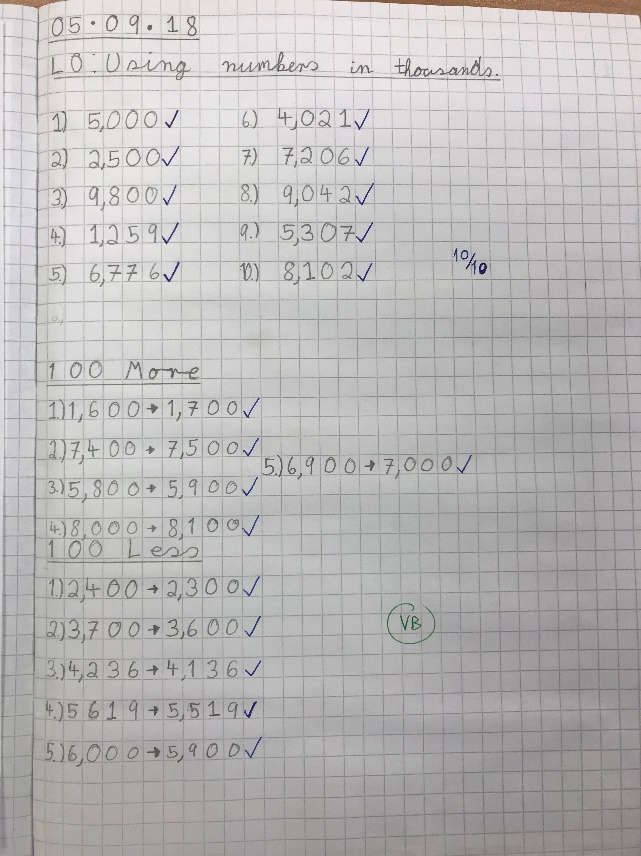 05.09.18
LO: Using numbers in thousands.
1) 5,000 ✓ 6) 4,021 ✓
2) 2,500 ✓ 7) 7,206 ✓
3) 9,800 ✓ 8.) 9,042 ✓
4.) 1,259 ✓ 9.) 5,307 ✓
5.) 6,776 ✓ 10.) 8,102 ✓
10/10
100 More
1) 1,600 → 1,700 ✓
2) 7,400 → 7,500 ✓
3.) 5,800 → 5,900 ✓
4.) 8,000 → 8,100 ✓
5.) 6,900 → 7,000 ✓
100 Less
1.) 2,400 → 2,300 ✓
2) 3,700 → 3,600 ✓
3.) 4,236 → 4,136 ✓
4.) 5619 → 5,519 ✓
5.) 6,000 → 5,900 ✓
VB